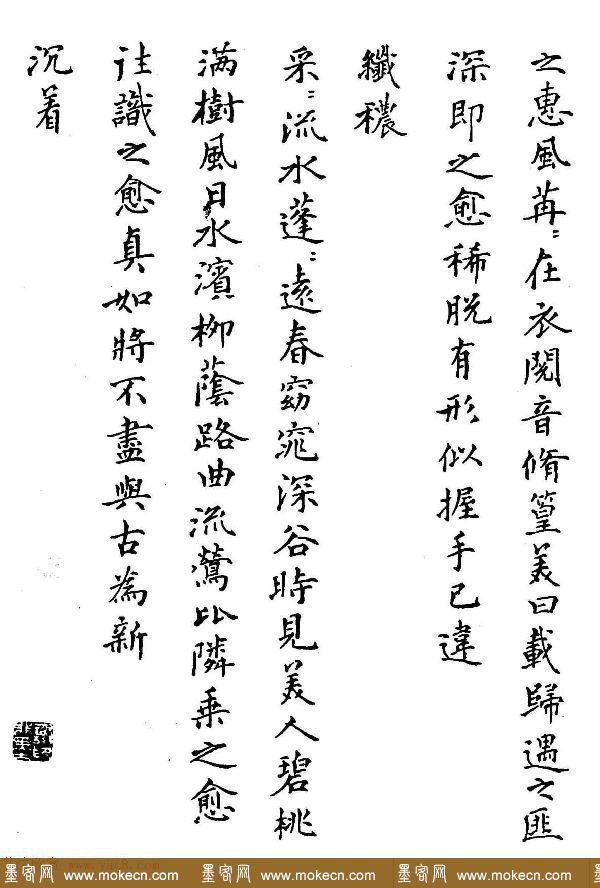 之惠風苒〻在衣閱音脩篁美曰載歸遇之匪
深即之愈稀脫有形似握手已違
纖穠
采〻流水蓬〻遠春窈窕深谷時見美人碧桃
满樹風日水濱柳蔭路曲流鶯比隣乗之愈
往識之愈真如將不盡與古為新
沉着
墨客网 www.mokecn.com 墨客网 www.mokecn.com 墨客网 www.mokecn.com 墨客网 www.mokecn.com